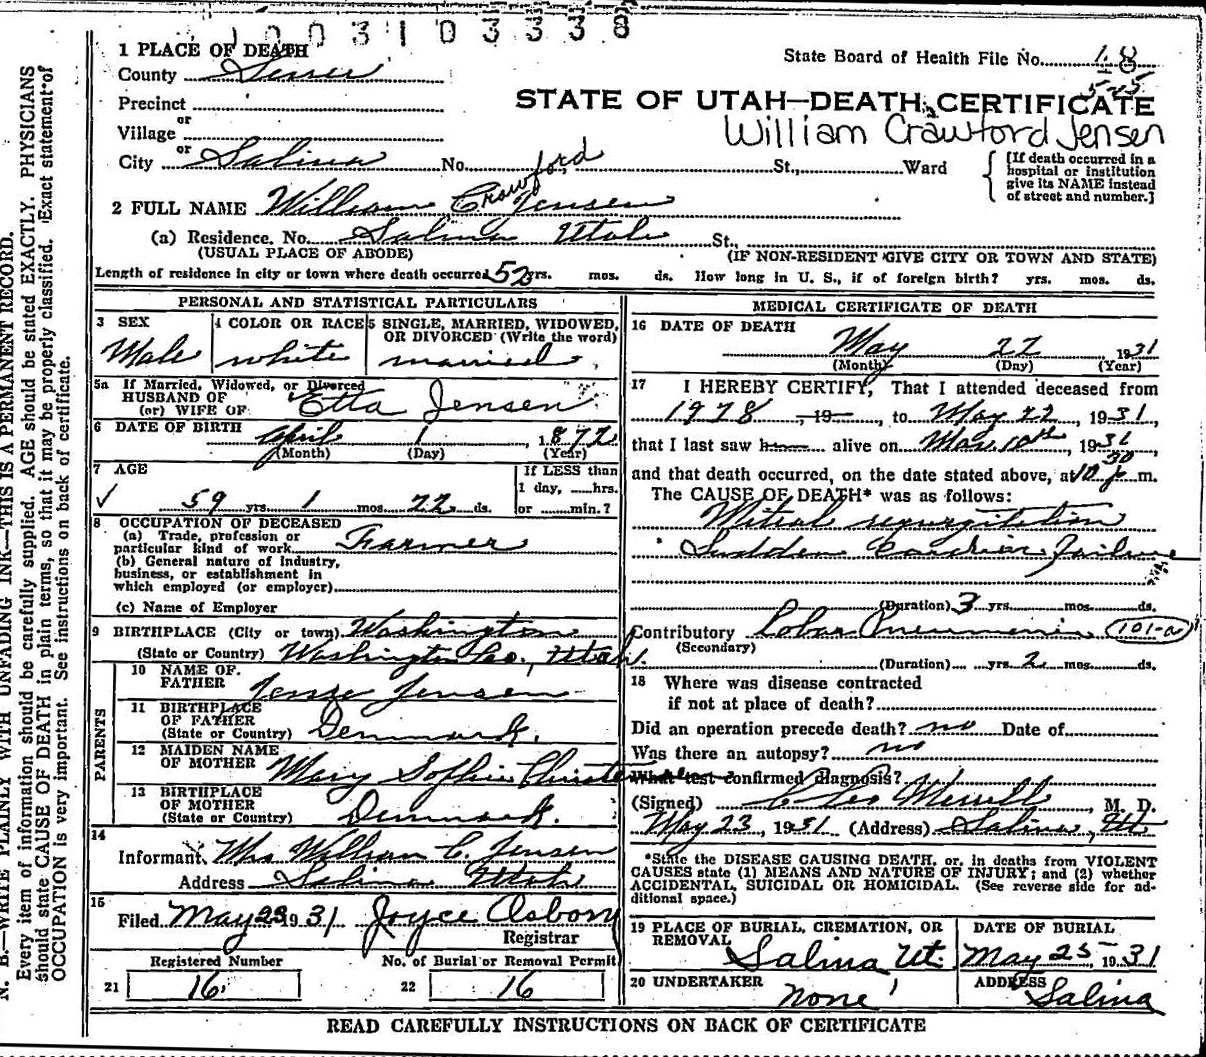 1003103338
1 PLACE OF DEATH
State Board of Health File No. 18
County Sevier
525
Precinct
STATE OF UTAH—DEATH CERTIFICATE
or
Village
William Crawford Jensen
or
City Salina No. St., Ward
[If death occurred in a hospital or institution give its NAME instead of street and number.]
2 FULL NAME William Crawford Jensen
(a) Residence. No. Salina Utah St.,
(USUAL PLACE OF ABODE) (IF NON-RESIDENT GIVE CITY OR TOWN AND STATE)
Length of residence in city or town where death occurred 52 yrs. mos. ds. How long in U. S., if of foreign birth? yrs. mos. ds.
PERSONAL AND STATISTICAL PARTICULARS
3 SEX
Male
4 COLOR OR RACE
white
5 SINGLE, MARRIED, WIDOWED, OR DIVORCED (Write the word)
married
5a If Married, Widowed, or Divorced
HUSBAND OF
(or) WIFE OF Etta Jensen
6 DATE OF BIRTH April 1, 1872
(Month) (Day) (Year)
7 AGE
59 yrs. 1 mos. 22 ds.
If LESS than
1 day, hrs.
or min.?
8 OCCUPATION OF DECEASED
(a) Trade, profession or
particular kind of work Farmer
(b) General nature of industry,
business, or establishment in
which employed (or employer)
(c) Name of Employer
9 BIRTHPLACE (City or town) Washington
(State or Country) Washington Co., Utah.
PARENTS
10 NAME OF FATHER Jense Jensen
11 BIRTHPLACE OF FATHER
(State or Country) Denmark.
12 MAIDEN NAME OF MOTHER Mary Sophie
13 BIRTHPLACE OF MOTHER
(State or Country) Denmark.
14
Informant Mrs William C. Jensen
Address Salina Utah
15
Filed May 23 1931 Joyce Osborn
Registrar
Registered Number No. of Burial or Removal Permit
21 16 22 16
MEDICAL CERTIFICATE OF DEATH
16 DATE OF DEATH
May 22 1931
(Month) (Day) (Year)
17 I HEREBY CERTIFY, That I attended deceased from
1928, 19 , to May 22, 1931,
that I last saw h alive on May 10th, 1931
and that death occurred, on the date stated above, at 10 30 p m.
The CAUSE OF DEATH* was as follows:
Mitral regurgitation
Sudden Cardiac Failure
(Duration) 3 yrs. mos. ds.
Contributory Lobar Pneumonia 101-a
(Secondary)
(Duration) yrs. 2 mos. ds.
18 Where was disease contracted
if not at place of death?
Did an operation precede death? no Date of
Was there an autopsy? no
What test confirmed diagnosis?
(Signed) Merrill, M. D.
May 23, 1931 (Address) Salina, Ut
*State the DISEASE CAUSING DEATH, or, in deaths from VIOLENT
CAUSES state (1) MEANS AND NATURE OF INJURY; and (2) whether
ACCIDENTAL, SUICIDAL OR HOMICIDAL. (See reverse side for additional space.)
19 PLACE OF BURIAL, CREMATION, OR REMOVAL
Salina Ut.
DATE OF BURIAL
May 25 1931
20 UNDERTAKER
none
ADDRESS
Salina
READ CAREFULLY INSTRUCTIONS ON BACK OF CERTIFICATE
N. B.—WRITE PLAINLY WITH UNFADING INK—THIS IS A PERMANENT RECORD.
Every item of information should be carefully supplied. AGE should be stated EXACTLY. PHYSICIANS
should state CAUSE OF DEATH in plain terms, so that it may be properly classified. Exact statement of
OCCUPATION is very important. See instructions on back of certificate.